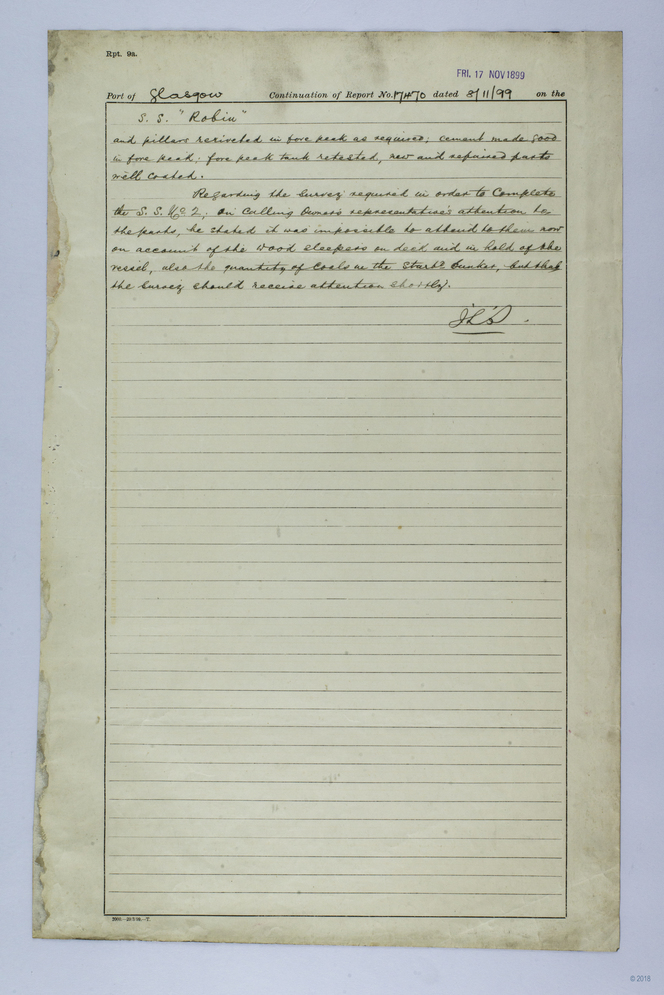 Rpt. 9a.
FRI. 17 NOV 1899
Port of Glasgow Continuation of Report No. 17470 dated 8/11/99 on the
S. S. "Robin"
and pillars reriveted in fore peak as required; cement made good
in fore peak: fore peak tank retested, new and repaired parts
well coated.
Regarding the Survey required in order to Complete
the S. S. No. 2; on Calling Owner's representative's attention to
the parts, he stated it was impossible to attend to them now
on account of the wood sleepers on deck and in hold of the
vessel, also the quantity of Coals in the Starbd bunker, but that
the Survey should receive attention shortly.
© 2018